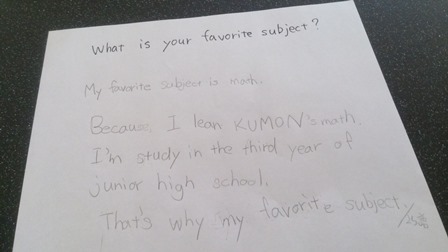 What is your favorite subject?
My favorite subject is math.
Because I lean KUMON's math.
I'm study in the third year of
junior high school.
That's why my favorite subject.